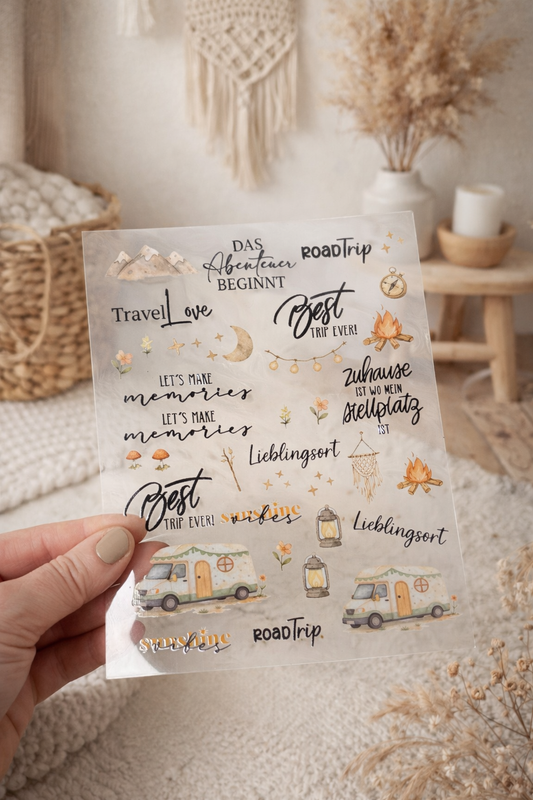 DAS
Abenteuer
BEGINNT
ROADTrip
TravelLove
Best
TRIP EVER!
LET'S MAKE
memories
zuhause
IST WO MEIN
stellplatz
IST
LET'S MAKE
memories
Lieblingsort
Best
TRIP EVER!
sunshine
vibes
Lieblingsort
sunshine
vibes
ROADTrip